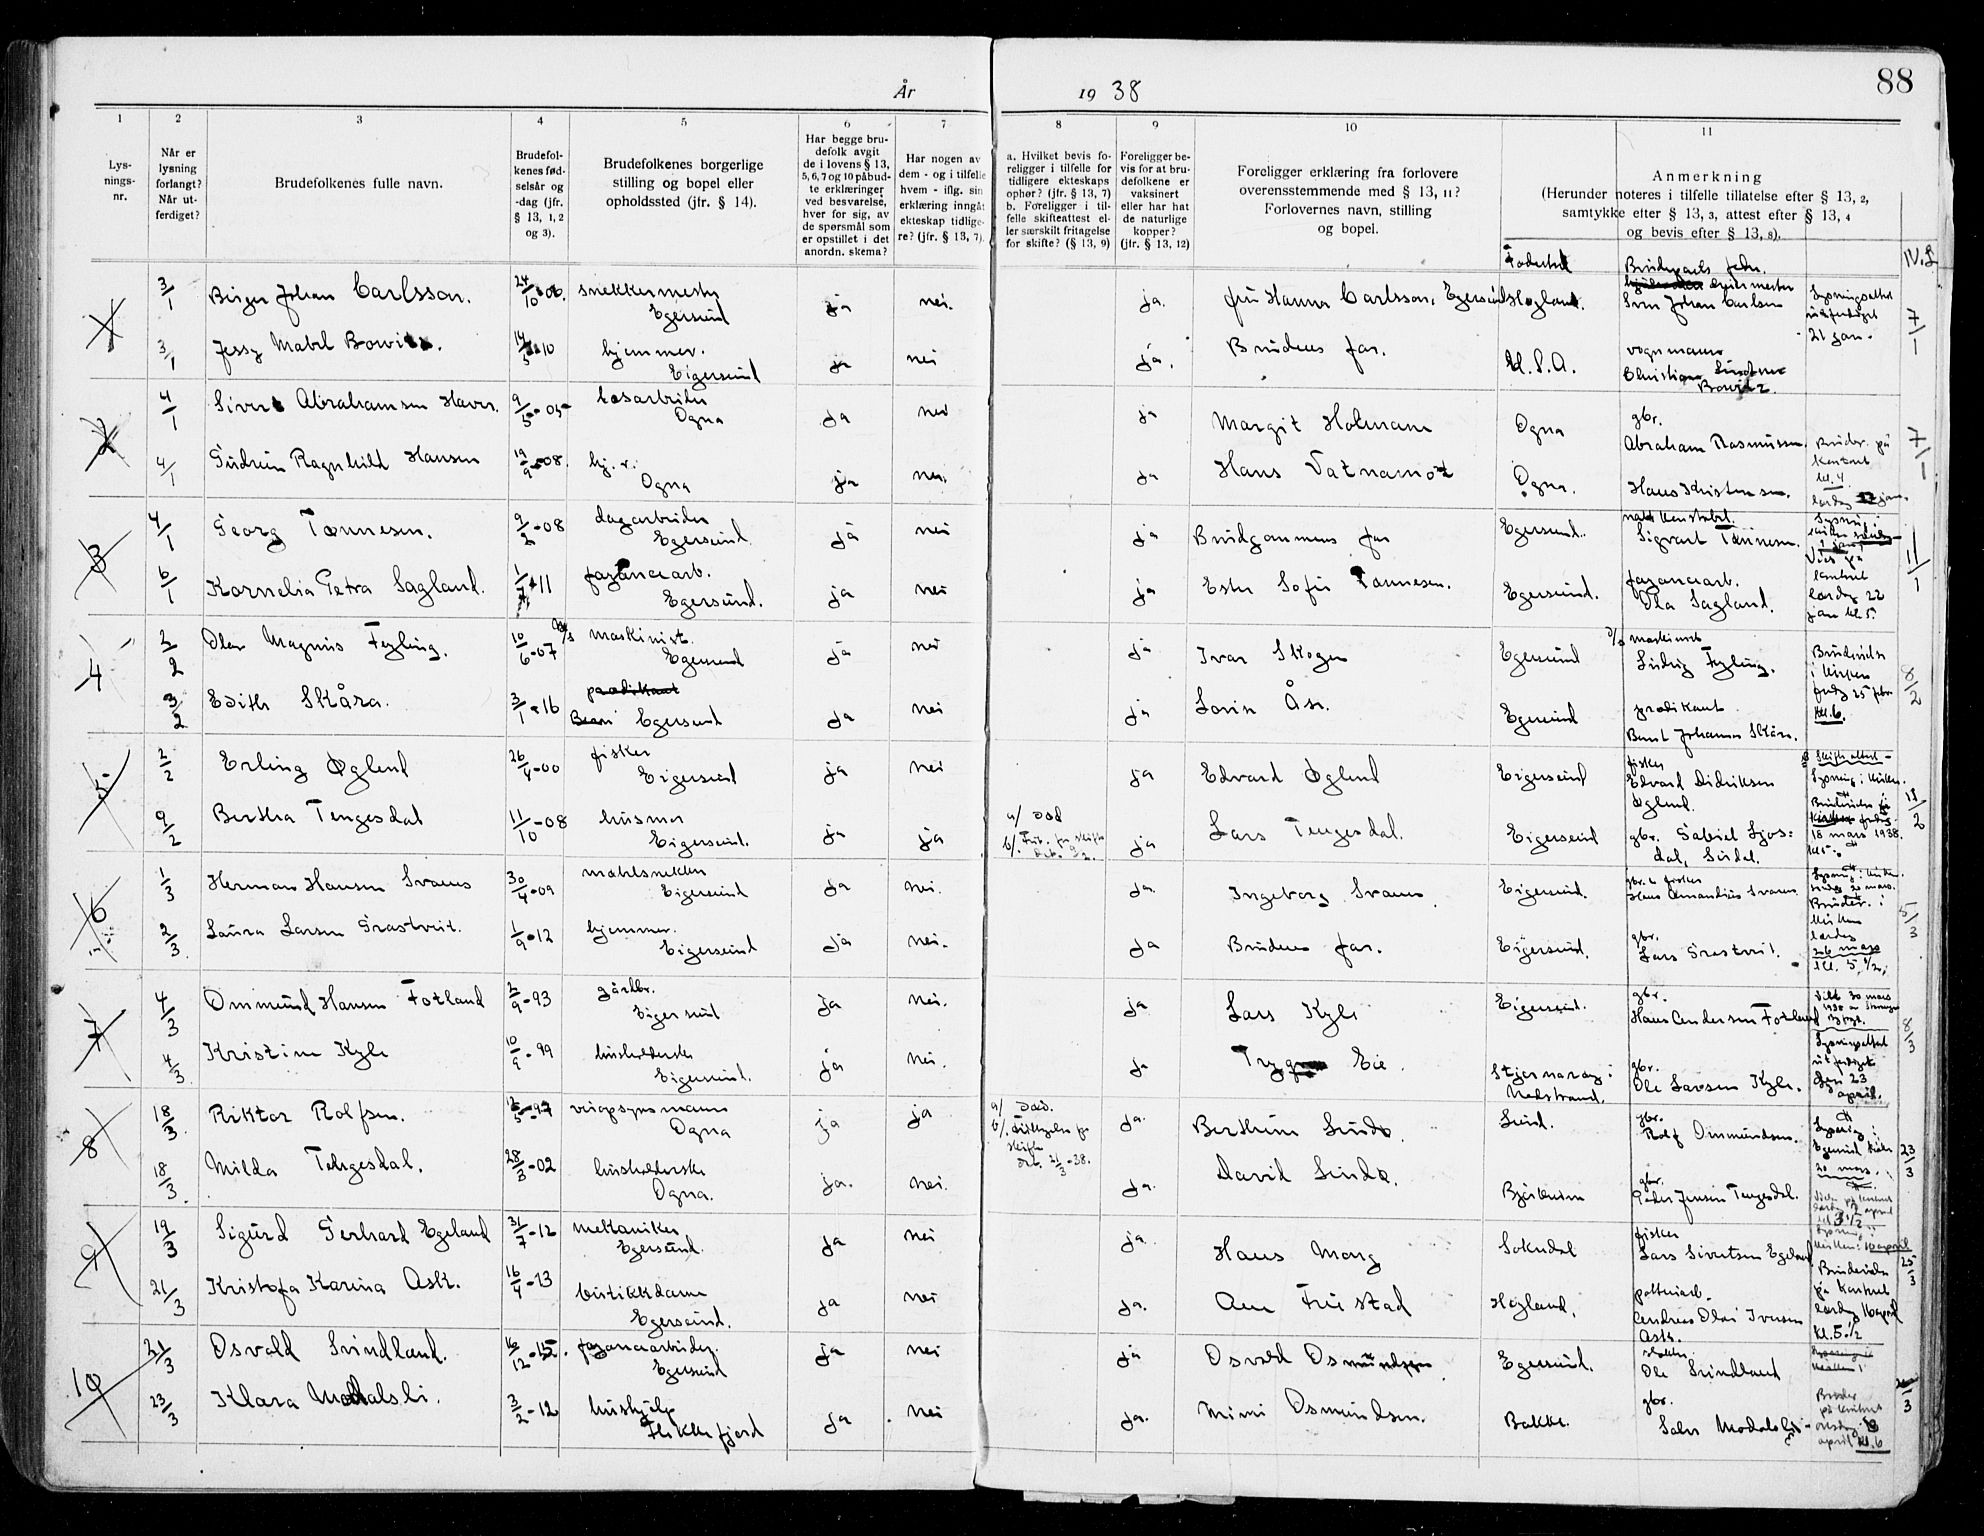 88
År 1938
1 2 3 4 5 6 7 8 9 10 11
Lys-
nings-
nr.
Når er
lysning
forlangt?
Når ut-
ferdiget?
Brudefolkenes fulle navn.
Brudefol-
kenes fød-
selsår og
-dag (jfr.
§ 13, 1, 2
og 3).
Brudefolkenes borgerlige
stilling og bopel eller
opholdssted (jfr. § 14).
Har begge bru-
defolk avgit
de i lovens § 13,
5, 6, 7 og 10 påbud-
te erklæringer
ved besvarelse,
hver for sig, av
de spørsmål som
er opstillet i det
anordn. skema?
Har nogen av
dem - og i tilfelle
hvem - iflg. sin
erklæring inngåt
ekteskap tidlige-
re? (jfr. § 13, 7).
a. Hvilket bevis fo-
religger i tilfelle for
tidligere ekteskaps
ophør? (jfr. § 13, 7)
b. Foreligger i til-
felle skifteattest el-
ler særskilt fritagelse
for skifte? (§ 13, 9)
Foreligger be-
vis for at bru-
defolkene er
vaksinert
eller har hat
de naturlige
kopper?
(jfr. § 13, 12)
Foreligger erklæring fra forlovere
overensstemmende med § 13, 11?
Forlovernes navn, stilling
og bopel.
Anmerkning
(Herunder noteres i tilfelle tillatelse efter § 13, 2,
samtykke efter § 13, 3, attest efter § 13, 4
og bevis efter § 13, 8).
Fødested Brudeparets fedre.
1 3/1 Birger Johan Carlsson. 24/10 06. snekkermester Egersund ja nei. ja. fru Hanna Carlsson, Egersund Høgland. Sven Johan Carlsson Lysningsattest utferdiget 21 jan. 7/1
3/1 Jessy Mabel Bowitz. 10 hjemmev. Eigersund ja nei ja. Brudens far. U.S.A. vognmann Christian Bowitz.
2 4/1 Sivert Abrahamsen Haver. 9/5-05 løsarbeider Ogna ja nei ja Margit Holmane Ogna gbr. Abraham Rasmussen 7/1
4/1 Gudrun Ragnhild Hansen 19/9-08. hj. v. Ogna ja nei. ja Hans Vatnamot Ogna. Hans Kristensen. Brudev. på kontoret kl. 4 lørdag
3 4/1 Georg Tønnesen. 9/2-08 dagarbeider Egersund. ja nei ja Brudgommens far Egersund. Sigvart Tønnesen. 11/1
6/1 Kornelia Petra Sagland. 11 fayancearb. Egersund. ja nei ja Ester Sofie Tønnesen. Egersund. fayancearb. Ola Sagland. Vies på kontoret lørdag 22 jan kl 5.
4 2/2 Olav Magnus Fyling. 10/6-07 maskinist. Egersund ja nei ja Ivar Skogen Egersund maskinist Ludvig Fyling. 8/2
3/2 Edith Skåra. 3/1-16 Egersund ja nei ja Lovise Ås. Egersund predikant. Bernt Johannes Skåra. Brudevielse i kirken fredag 25 febr kl.6.
5 2/2 Erling Øglend 26/4-00 fisker Eigersund ja nei ja Edvard Øglend Eigersund fisker Edvard Didriksen Øglend. Skifteattest - Lysning i kirken. 11/2
9/2 Bertha Tengesdal 11/10-08 husmor Eigersund. ja ja a/ død ja Lars Tengesdal. Eigersund gbr. Gabriel Ljos-
dal, Sirdal. 18 mars 1938.
6 1/3 Herman Hansen Svanes 30/4-09 møbelsnekker Eigersund ja nei. ja. Ingeborg Svanes Eigersund. gbr. & fisker Hans Amandius Svanes 5/3
2/3 Laura Larsen Grastveit. 1/9-12 hjemmev. Eigersund ja nei. ja Brudens far. Eigersund. gbr. Lars Grastveit. Brudev. i kirken lørdag 26 mars kl. 5 1/2.
7 4/3 Ommund Hansen Fotland 2/9-93 gårdbr. Eigersund ja nei. ja Lars Kyle Eigersund. gbr. Hans Andersen Fotland 8/3
4/3 Kristine Kyle 10/9-99 husholderske Eigersund. ja nei. ja Trygve Eie. Stjernarøy i Nedstrand. gbr. Ole Larsen Kyle. Lysningsattest utferdiget den 23 april.
8 18/3 Riktor Rolfsen. veiopsynsmann Ogna ja ja a/ Død. b/. Fritagelse for skifte ja. Berthine Lindø. Lund. gbr. Rolf Ommundsen. 23/3
18/3 Milda Tengesdal. 28/3-02 husholderske Ogna. ja. nei. ja. David Lindø. Bjerkreim gbr. Peder Jensen Tengesdal.
9 19/3 Sigurd Gerhard Egeland 31/7-12 mekaniker Egersund. ja nei ja Hans Mong Sokndal fisker Lars Sivertsen Egeland 25/3
21/3 Kristofa Karina Ask. 16/4-13 butikkdame Egersund. ja nei ja. Ane Fuestad Høgland. pottemarb. Andreas Olai Iversen Ask. Brudevielse på kontoret lørdag 16 april kl. 5 1/2
10 21/3 Osvald Svindland. fayancearbeider. Egersund ja nei ja Osvald Osmundsen Egersund. Ole Svindland
23/3 Klara Modalsli. 3/2-12 hushjelp Flekkefjord ja nei ja. Mimi Osmundsen. Bakke. gbr. Salve Modalsli april kl. 6